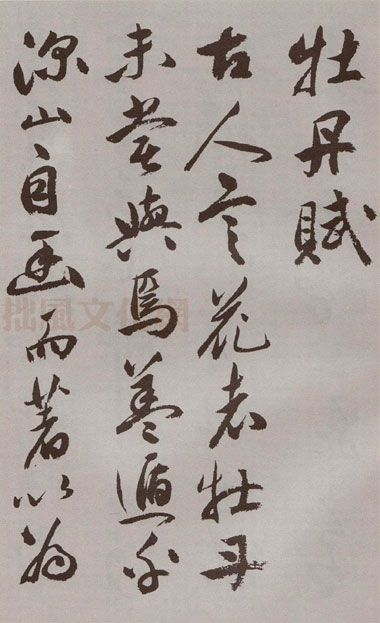 牡丹賦
古人言花者牡丹
未嘗與焉蓋遁乎
深山自幽而著以為
拙風文化網